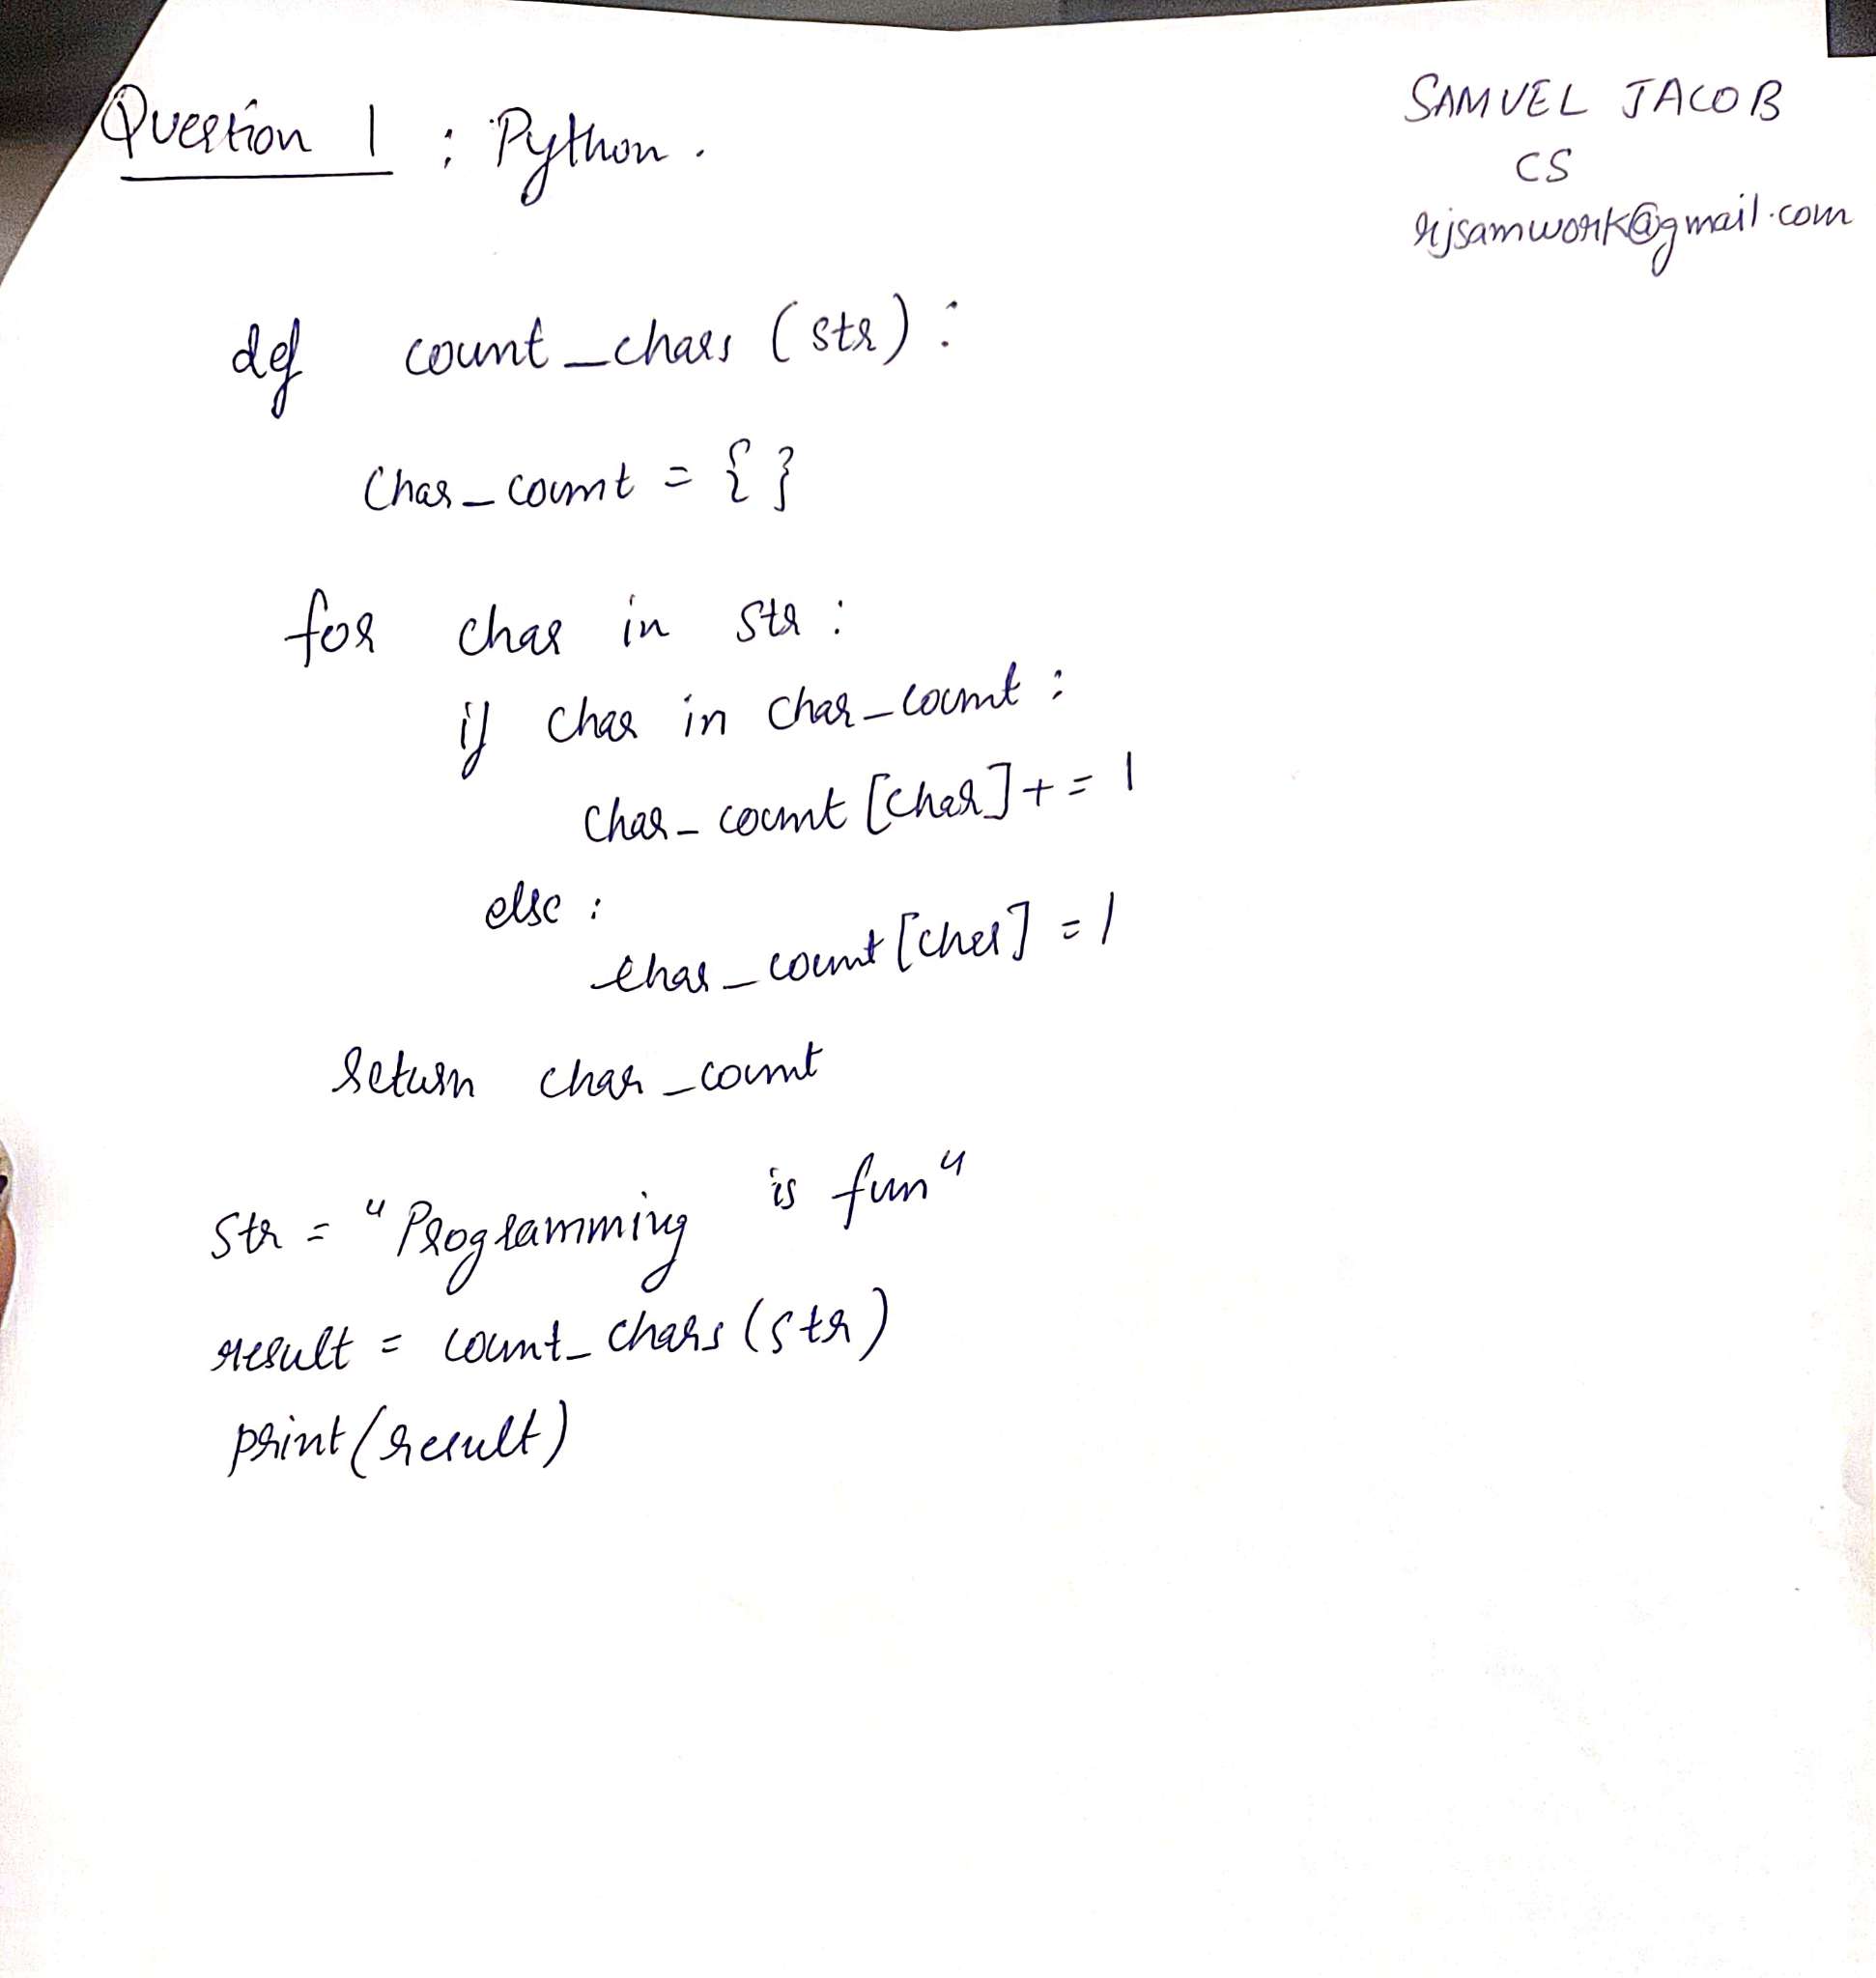 Question 1 : Python.
SAMUEL JACOB
CS
rjsamwork@gmail.com
def count_chars (str):
char_count = { }
for char in str :
if char in char_count :
char_count [char] += 1
else :
char_count [char] = 1
return char_count
str = "Programming is fun"
result = count_chars (str)
print (result)